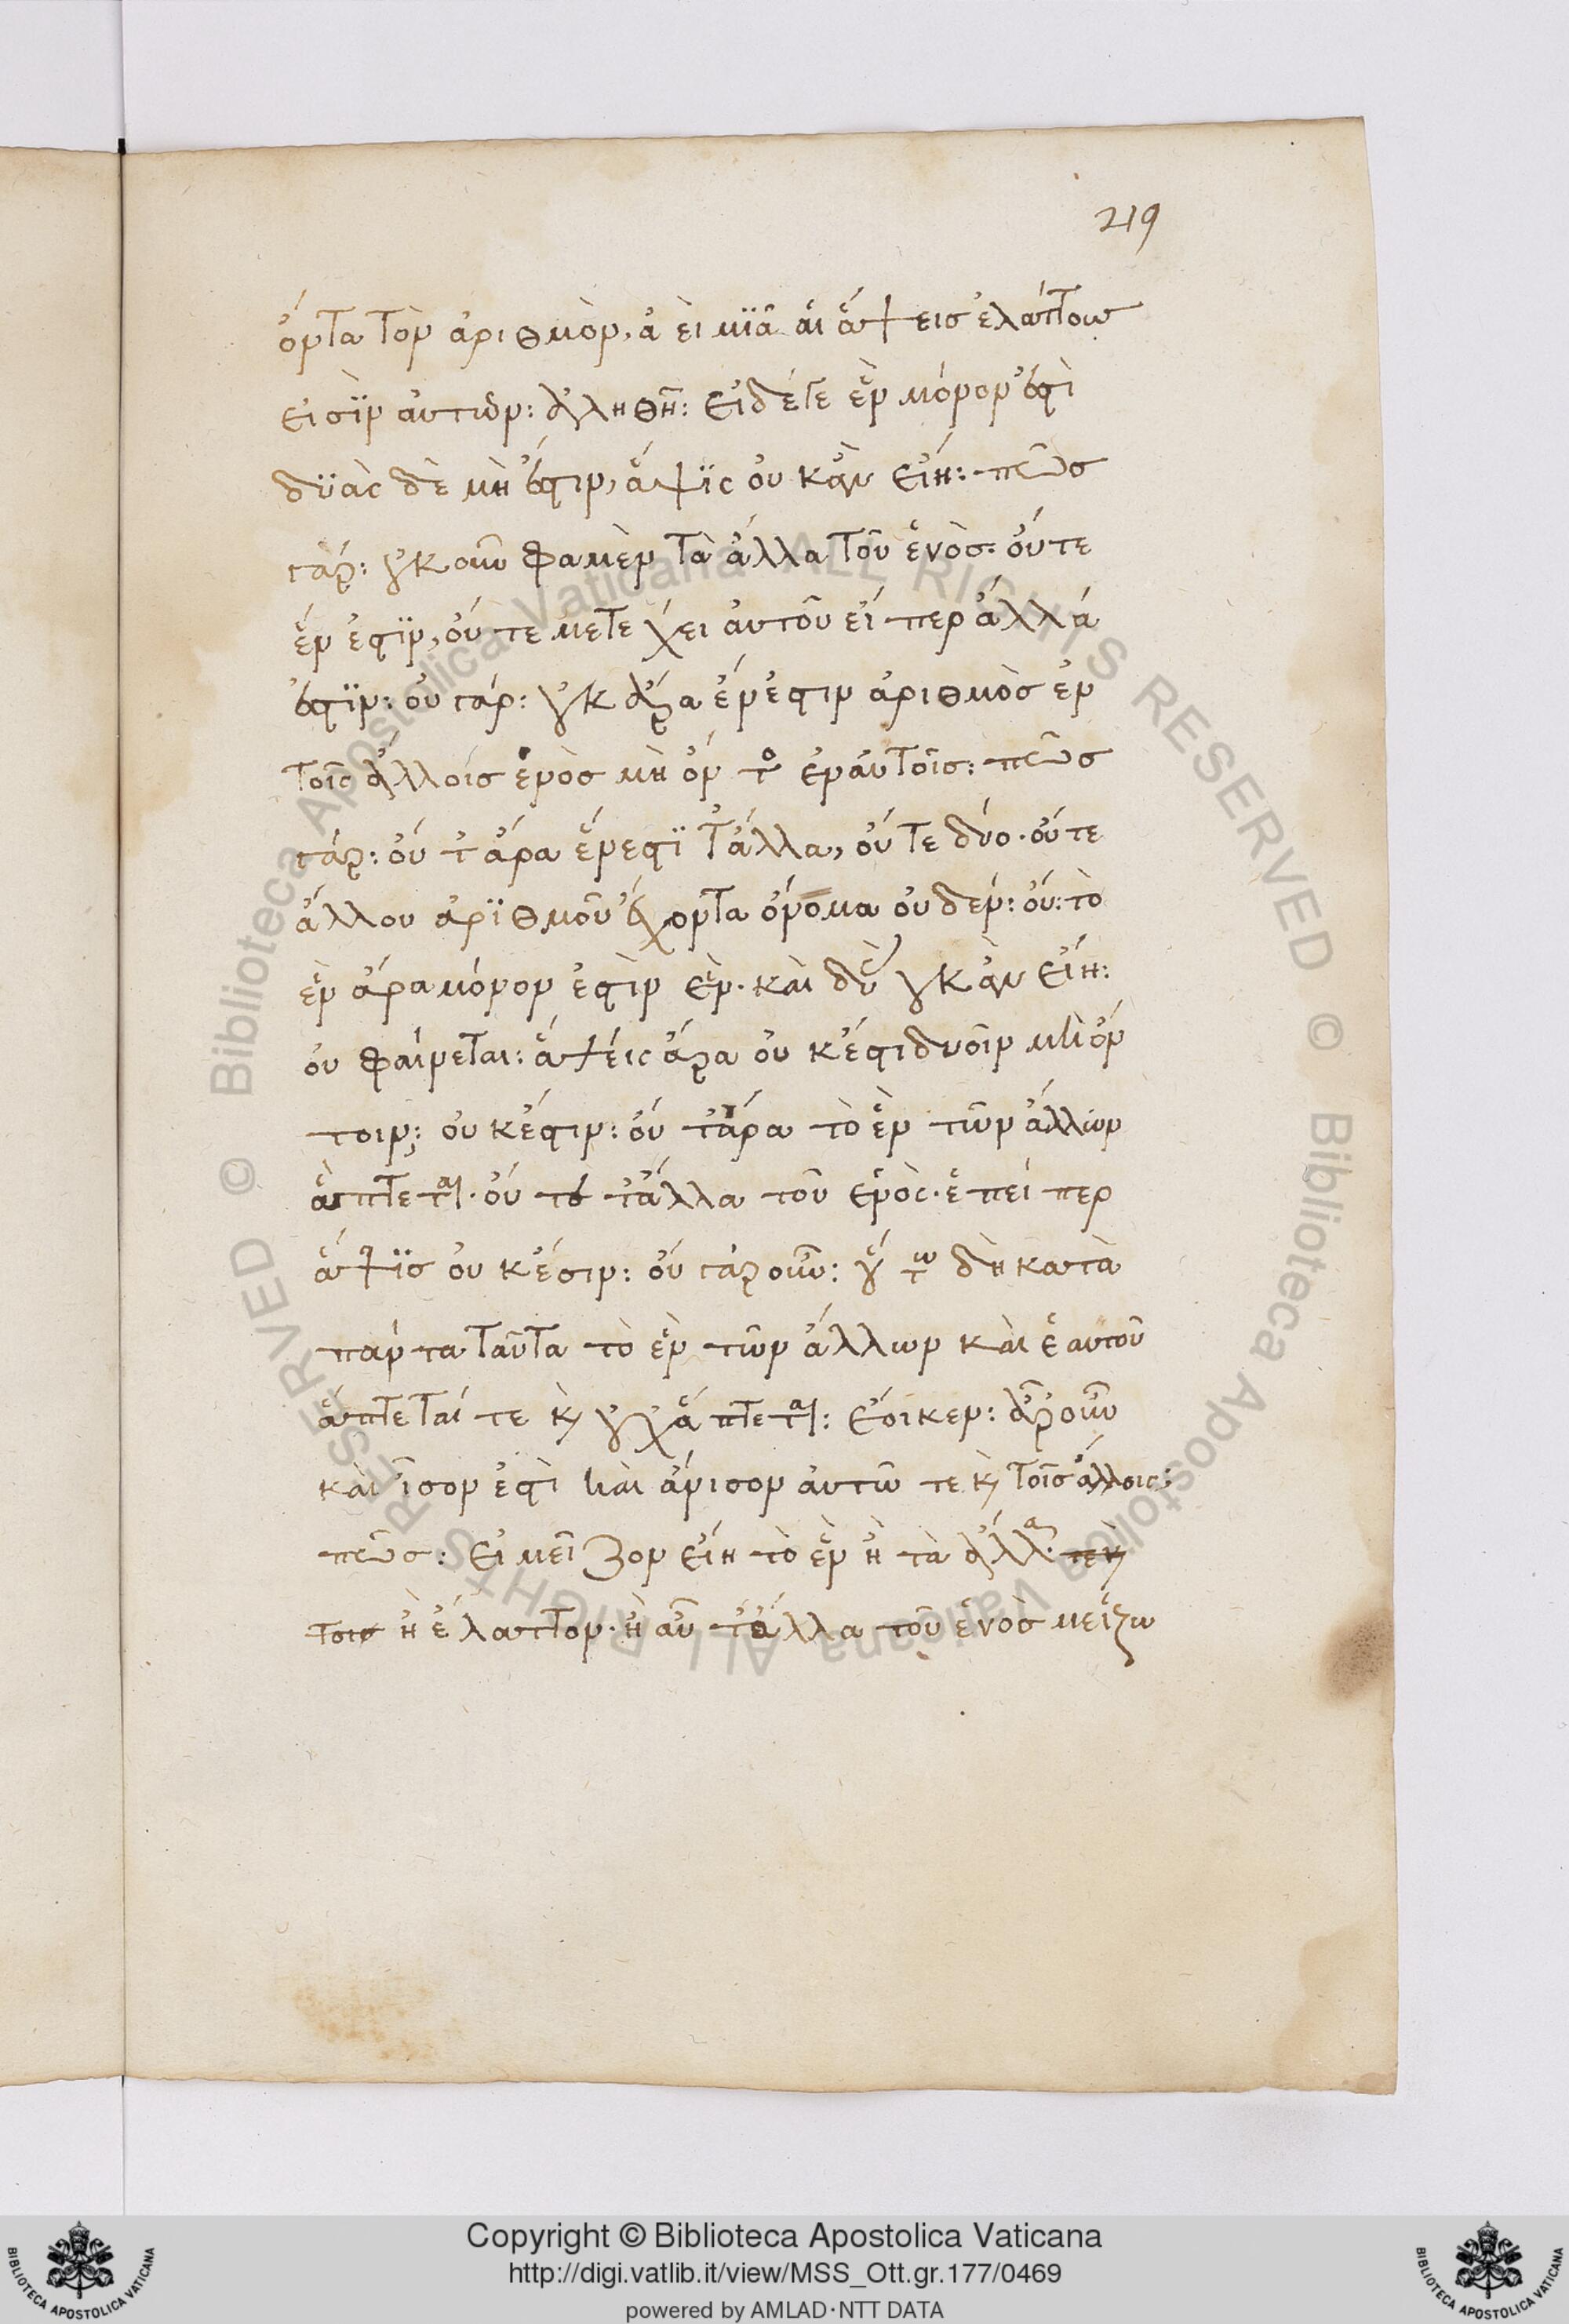 219
ὄντα τὸν ἀριθμὸν, ἀεὶ μϊᾶ αἱ ἅψεις ἐλάττους
εἰσῒν αὐτῶν: ἀληθῆ: εἰ δέγε ἓν μόνον ἐστὶ
δϋὰς δὲ μὴ ἔστιν, ἅψϊς οὐκ ἂν εἴη: πῶς
γάρ: οὐκοῦν φαμὲν τὰ ἄλλα τοῦ ἑνὸς· οὔτε
ἕν ἐστϊν, οὔτε μετέχει αὐτοῦ εἴπερ ἄλλά
ἐστϊν: οὐ γάρ: οὐκ ἄρα ἔνεστιν ἀριθμὸς ἐν
τοῖς ἄλλοίς ἑνὸς μὴ ὄντος ἐν αὐτοῖς: πῶς
γάρ: οὔτ ἄρα ἕν ἐστϊ τἄλλα, οὔτε δύο· οὔτε
ἄλλου ἀρϊθμοῦ ἔχοντα ὄνομα οὐδέν: οὔ: τὸ
ἓν ἄρα μόνον ἐστὶν ἓν· καὶ δυὰς οὐκ ἂν εἴη:
οὐ φαίνεται: ἅψεις ἄρα οὐκ ἔστι δυοῖν μὴ ὄν
τοιν: οὐκ ἔστιν: οὔτ ἄρα τὸ ἓν τῶν ἄλλων
ἅπτεται· οὔτε τἄλλα τοῦ ἑνὸς· ἐπείπερ
ἅψϊς οὐκ ἔστιν: οὐ γὰρ οὖν: οὕτω δὴ κατὰ
πάντα ταῦτα τὸ ἓν τῶν ἄλλων καὶ ἑαυτοῦ
ἅπτεταί τε καὶ οὐχ ἅπτεται: ἔοικεν: ἆρ οὖν
καὶ ἶσον ἐστὶ καὶ ἄνισον αὐτῶ τε καὶ τοῖς ἄλλοις:
πῶς: εἰ μεῖζον εἴη τὸ ἓν ἢ τὰ ἄλλα· τε καὶ
τοις ἢ ἔλαττον· ἢ αὖ τἄλλα τοῦ ἑνὸς μείζω
Copyright © Biblioteca Apostolica Vaticana
http://digi.vatlib.it/view/MSS_Ott.gr.177/0469
powered by AMLAD·NTT DATA
BIBLIOTECA APOSTOLICA VATICANA
BIBLIOTECA APOSTOLICA VATICANA
© Biblioteca Apostolica Vaticana ALL RIGHTS RESERVED © Biblioteca Apostolica Vaticana ALL RIGHTS RESERVED